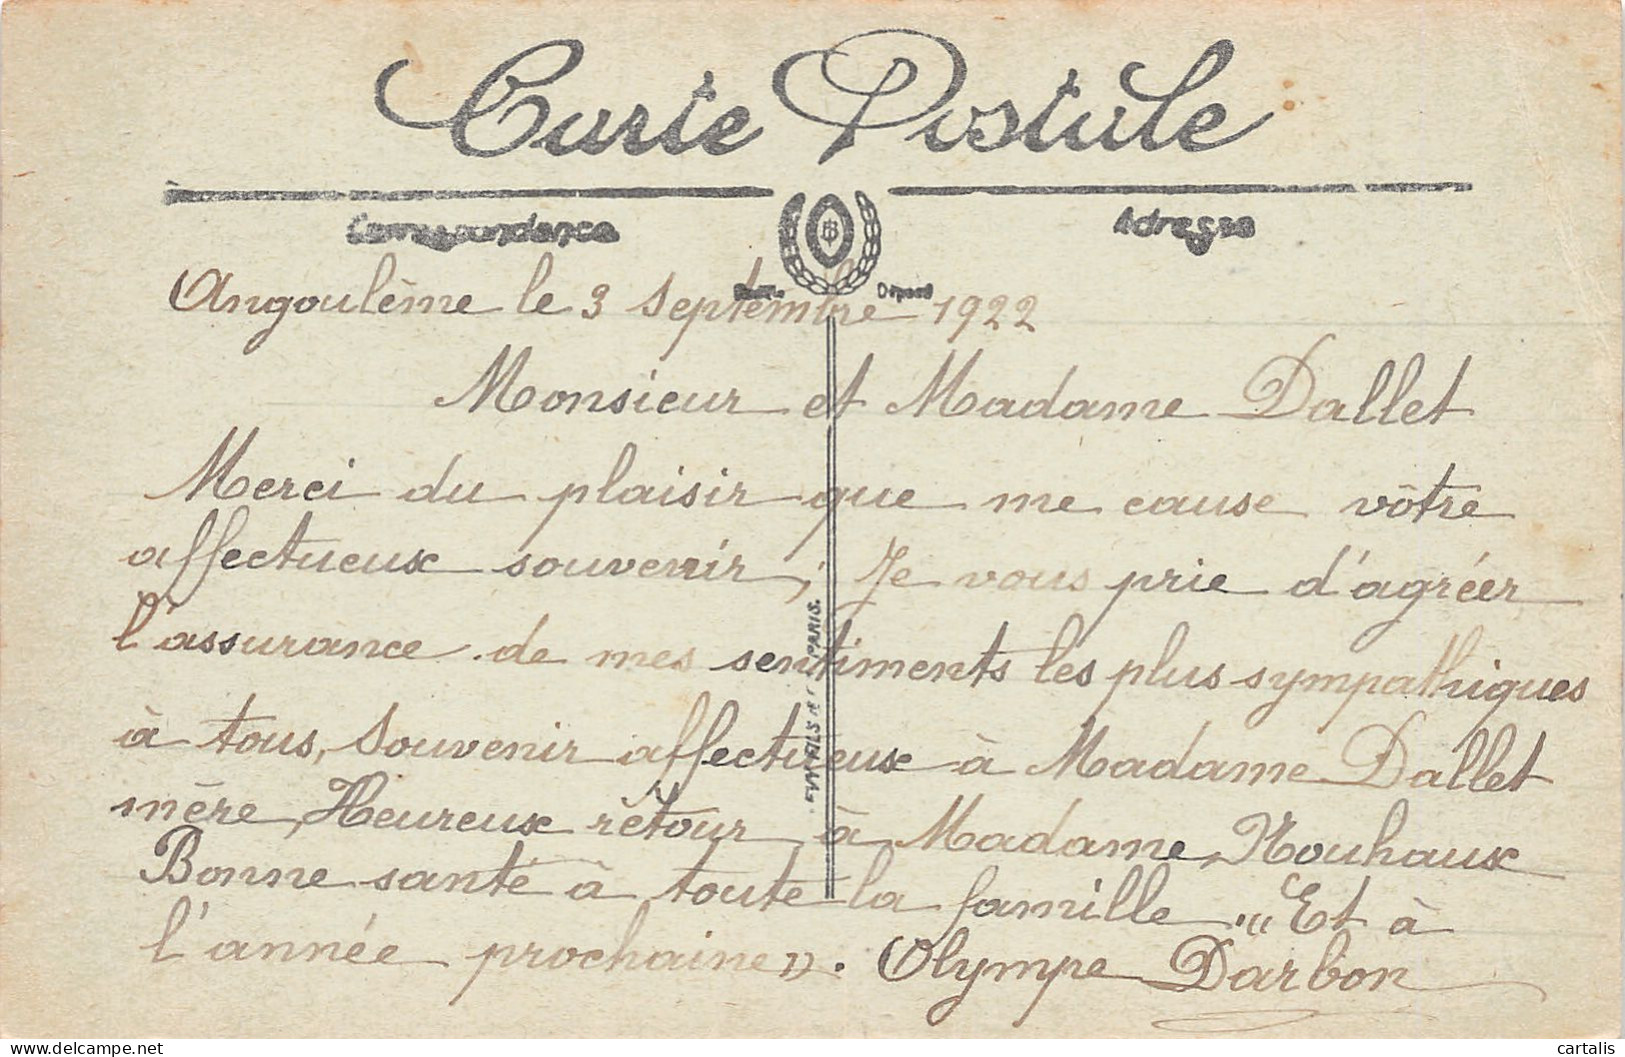 Carte Postale
Correspondance
Adresse
Angoulême le 3 Septembre 1922
Monsieur et Madame Dallet
Merci du plaisir que me cause vôtre
affectueux souvenir, Je vous prie d'agréer
l'assurance de mes sentiments les plus sympathiques
à tous, Souvenir affectueux à Madame Dallet
mère, Heureux rêtour à Madame Nouhaux
Bonne santé à toute la famille „ "Et à
l'année prochaine ». Olympe Darbon
FILS PARIS.
delcampe.net
cartalis